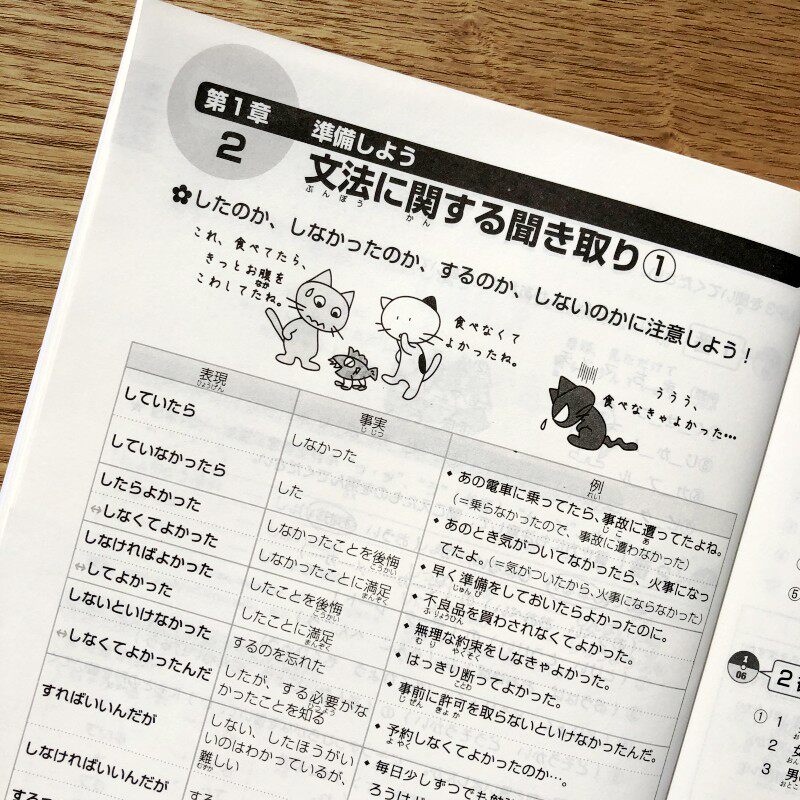 第1章 準備しよう
2 文法に関する聞き取り①
ぶんぽう かん
✿したのか、しなかったのか、するのか、しないのかに注意しよう！
これ、食べてたら、
きっとお腹を
なか
こわしてたね。
食べなくて
よかったね。
ううう、
食べなきゃよかった…
表現 事実 例
ひょうげん じじつ れい
していたら しなかった
・あの電車に乗ってたら、事故に遭ってたよね。
じこ あ
（＝乗らなかったので、事故に遭わなかった）
していなかったら した
・あのとき気がついてなかったら、火事になっ
てたよ。（＝気がついたから、火事にならなかった）
したらよかった しなかったことを後悔
こうかい
・早く準備をしておいたらよかったのに。
じゅんび
⇔しなくてよかった しなかったことに満足
まんぞく
・不良品を買わされなくてよかった。
ふりょうひん
しなければよかった したことを後悔
こうかい
・無理な約束をしなきゃよかった。
むり やくそく
⇔してよかった したことに満足
まんぞく
・はっきり断ってよかった。
ことわ
しないといけなかった するのを忘れた
・事前に許可を取らないといけなかったんだ。
じぜん きょか
⇔しなくてよかったんだ したが、する必要がな
ひつよう
かったことを知る
・予約しなくてよかったのか…。
よやく
すればいいんだが しない、したほうがい
いのはわかっているが、
難しい
むずか
・毎日少しずつでも勉
ろうけど
しなければいいんだが する
する
06
2
① 1
2 女
おん
3 男
おとこ
⑤